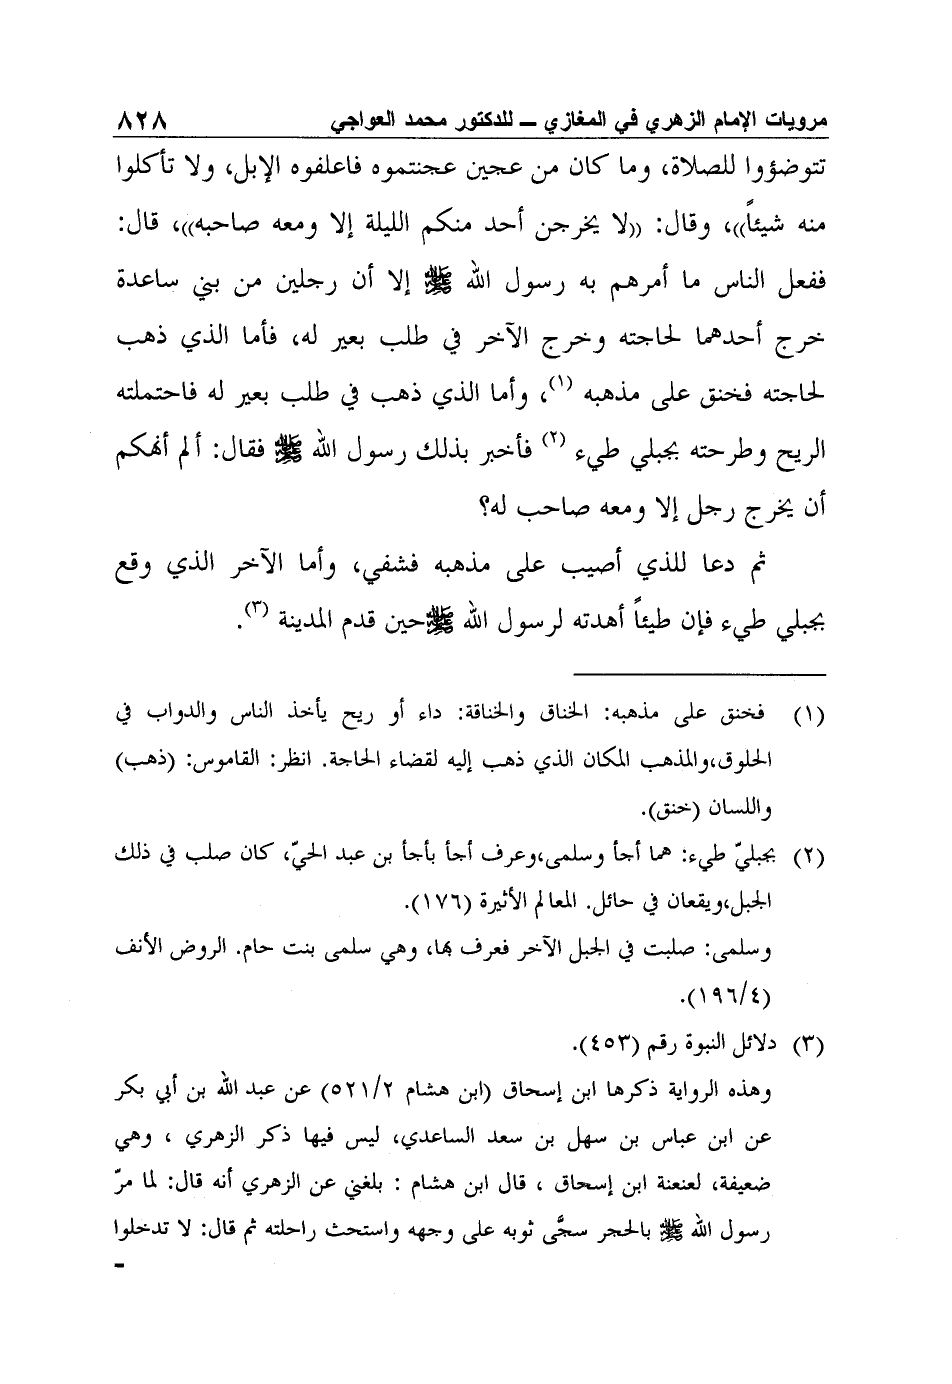 مرويات الإمام الزهري في المغازي ــ للدكتور محمد العواجي ٨٢٨
تتوضؤوا للصلاة، وما كان من عجين عجنتموه فاعلفوه الإبل، ولا تأكلوا
منه شيئاً))، وقال: ((لا يخرجن أحد منكم الليلة إلا ومعه صاحبه))، قال:
ففعل الناس ما أمرهم به رسول الله ﷺ إلا أن رجلين من بني ساعدة
خرج أحدهما لحاجته وخرج الآخر في طلب بعير له، فأما الذي ذهب
لحاجته فخنق على مذهبه (١)، وأما الذي ذهب في طلب بعير له فاحتملته
الريح وطرحته بجبلي طيء (٢) فأخبر بذلك رسول الله ﷺ فقال: ألم أنهكم
أن يخرج رجل إلا ومعه صاحب له؟
ثم دعا للذي أصيب على مذهبه فشفي، وأما الآخر الذي وقع
بجبلي طيء فإن طيئاً أهدته لرسول الله ﷺحين قدم المدينة (٣).
(١) فخنق على مذهبه: الخناق والخناقة: داء أو ريح يأخذ الناس والدواب في
الحلوق،والمذهب المكان الذي ذهب إليه لقضاء الحاجة. انظر: القاموس: (ذهب)
واللسان (خنق).
(٢) بجبليّ طيء: هما أجأ وسلمى،وعرف أجأ بأجأ بن عبد الحيّ، كان صلب في ذلك
الجبل،ويقعان في حائل. المعالم الأثيرة (١٧٦).
وسلمى: صلبت في الجبل الآخر فعرف بها، وهي سلمى بنت حام. الروض الأنف
(١٩٦/٤).
(٣) دلائل النبوة رقم (٤٥٣).
وهذه الرواية ذكرها ابن إسحاق (ابن هشام ٥٢١/٢) عن عبد الله بن أبي بكر
عن ابن عباس بن سهل بن سعد الساعدي، ليس فيها ذكر الزهري ، وهي
ضعيفة، لعنعنة ابن إسحاق ، قال ابن هشام : بلغني عن الزهري أنه قال: لما مرّ
رسول الله ﷺ بالحجر سجَّى ثوبه على وجهه واستحث راحلته ثم قال: لا تدخلوا
-